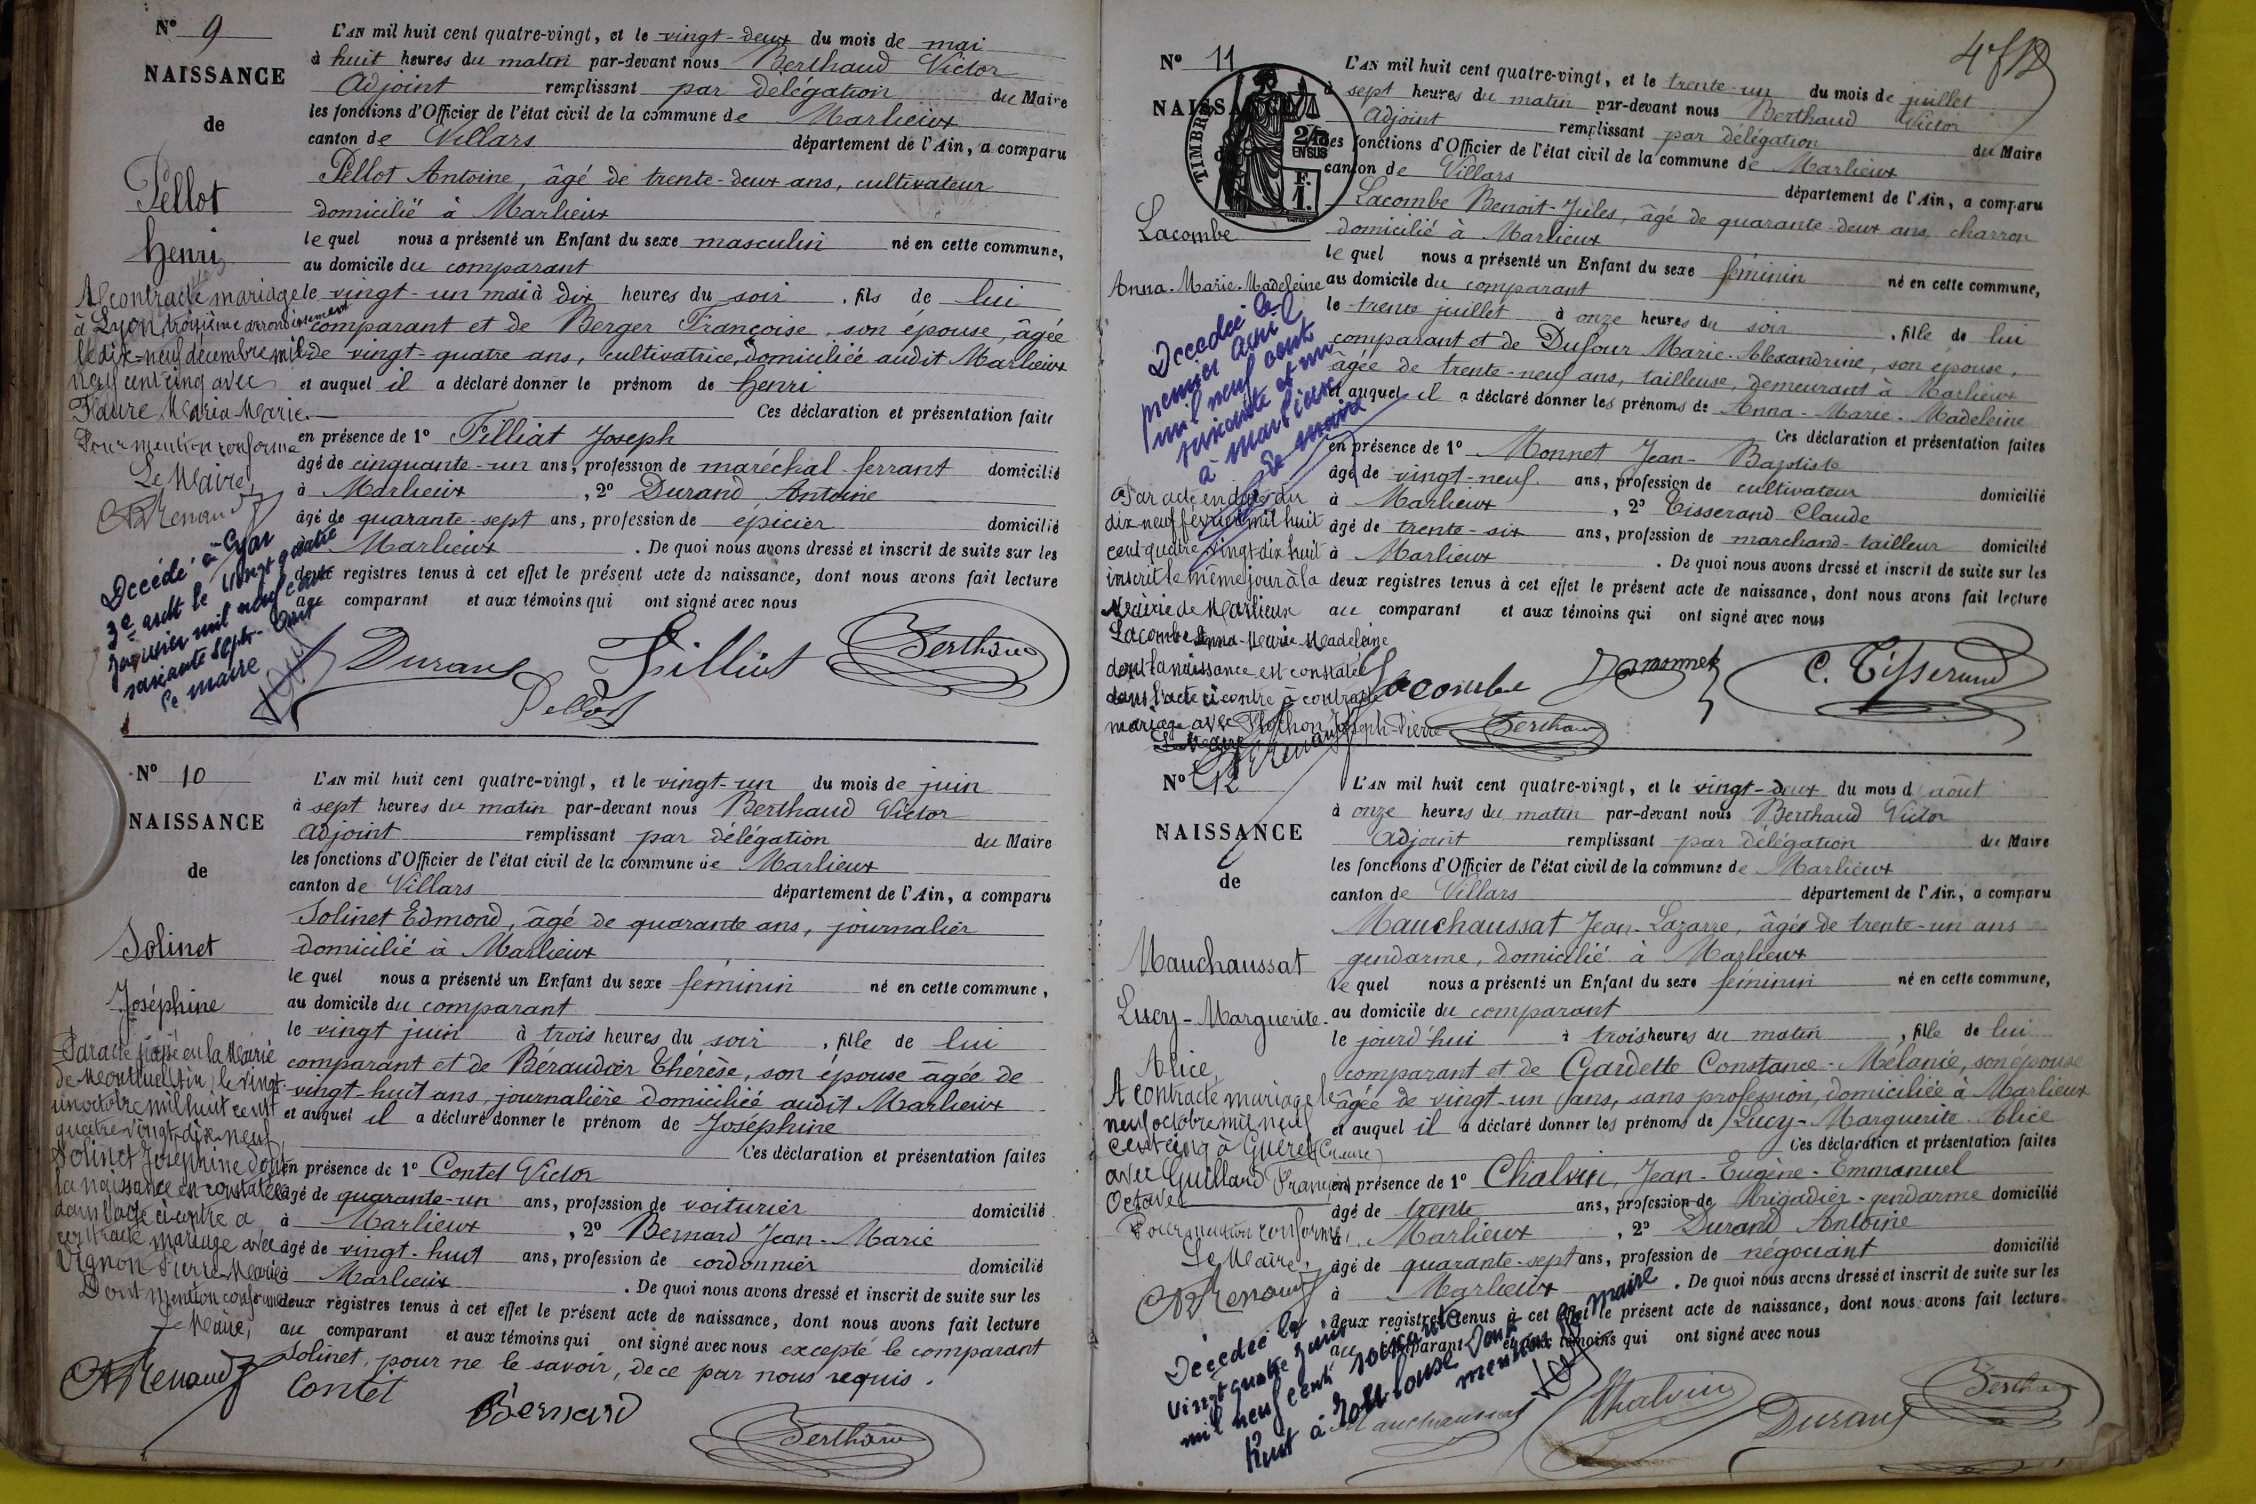 N° 9
NAISSANCE
de
Pellot
Henri
L'AN mil huit cent quatre-vingt, et le vingt-deux du mois de mai
à huit heures du matin par-devant nous Berthaud Victor
Adjoint remplissant par délégation du Maire
les fonctions d'Officier de l'état civil de la commune de Marlieux
canton de Villars département de l'Ain, a comparu
Pellot Antoine, âgé de trente-deux ans, cultivateur
domicilié à Marlieux
le quel nous a présenté un Enfant du sexe masculin né en cette commune,
au domicile du comparant
le vingt-un mai à dix heures du soir, fils de lui
comparant et de Berger Françoise, son épouse, âgée
de vingt-quatre ans, cultivatrice, domiciliée audit Marlieux
et auquel il a déclaré donner le prénom de Henri
Ces déclaration et présentation faite
en présence de 1° Filliat Joseph
âgé de cinquante-un ans, profession de maréchal-ferrant domicilié
à Marlieux, 2° Durand Antoine
âgé de quarante-sept ans, profession de épicier domicilié
à Marlieux. De quoi nous avons dressé et inscrit de suite sur les
deux registres tenus à cet effet le présent acte de naissance, dont nous avons fait lecture
au comparant et aux témoins qui ont signé avec nous
A contracté mariage
à Lyon, troisième arrondissement
le dix-neuf décembre mil
neuf cent cinq avec
Faure Maria Marie.
Pour mention conforme
Le Maire,
Renaud
Décédé à Lyon
3e arrdt le vingt quatre
janvier mil neuf cent
soixante sept
Le maire
Durand Filliat Berthaud
Pellot
N° 10
NAISSANCE
de
Solinet
Joséphine
L'AN mil huit cent quatre-vingt, et le vingt-un du mois de juin
à sept heures du matin par-devant nous Berthaud Victor
adjoint remplissant par délégation du Maire
les fonctions d'Officier de l'état civil de la commune de Marlieux
canton de Villars département de l'Ain, a comparu
Solinet Edmond, âgé de quarante ans, journalier
domicilié à Marlieux
le quel nous a présenté un Enfant du sexe féminin né en cette commune,
au domicile du comparant
le vingt juin à trois heures du soir, fille de lui
comparant et de Béraudier Thérèse, son épouse âgée de
vingt-huit ans, journalière domiciliée audit Marlieux
et auquel il a déclaré donner le prénom de Joséphine
Ces déclaration et présentation faites
en présence de 1° Contet Victor
âgé de quarante-un ans, profession de voiturier domicilié
à Marlieux, 2° Bernard Jean-Marie
âgé de vingt-huit ans, profession de cordonnier domicilié
à Marlieux. De quoi nous avons dressé et inscrit de suite sur les
deux registres tenus à cet effet le présent acte de naissance, dont nous avons fait lecture
au comparant et aux témoins qui ont signé avec nous excepté le comparant
Solinet, pour ne le savoir, de ce par nous requis.
Par acte passé en la Mairie
de Montluel, le vingt-
un octobre mil huit cent
quatre-vingt-dix-neuf,
Solinet Joséphine dont
la naissance est constatée
dans l'acte ci-contre a
contracté mariage avec
Vignon Pierre-Marie
Dont mention conforme
Le Maire,
Renaud
Contet
Bernard
Berthaud
4 f 12
N° 11
NAISSANCE
TIMBRE
2/10
EN SUS
F.
1.
Lacombe
Anna-Marie-Madeleine
L'AN mil huit cent quatre-vingt, et le trente-un du mois de juillet
à sept heures du matin par-devant nous Berthaud Victor
Adjoint remplissant par délégation du Maire
les fonctions d'Officier de l'état civil de la commune de Marlieux
canton de Villars département de l'Ain, a comparu
Lacombe Benoit-Jules, âgé de quarante-deux ans, charron
domicilié à Marlieux
le quel nous a présenté un Enfant du sexe féminin né en cette commune,
au domicile du comparant
le trente juillet à onze heures du soir, fille de lui
comparant et de Dufour Marie-Alexandrine, son épouse,
âgée de trente-neuf ans, tailleuse, demeurant à Marlieux
et auquel il a déclaré donner les prénoms de Anna-Marie-Madeleine
Ces déclaration et présentation faites
en présence de 1° Monnet Jean-Baptiste
âgé de vingt-neuf ans, profession de cultivateur domicilié
à Marlieux, 2° Tisserand Claude
âgé de trente-six ans, profession de marchand-tailleur domicilié
à Marlieux. De quoi nous avons dressé et inscrit de suite sur les
deux registres tenus à cet effet le présent acte de naissance, dont nous avons fait lecture
au comparant et aux témoins qui ont signé avec nous
Décédée le
premier avril
mil neuf cent
soixante et un
à Marlieux
Le maire
Par acte en date du
dix neuf février mil huit
cent quatre-vingt dix huit
inscrit le même jour à la
Mairie de Marlieux
Lacombe Anna-Marie-Madeleine
dont la naissance est constatée
dans l'acte ci contre a contracté
mariage avec Plathon Joseph-Pierre
Le Maire
Renaud
Lacombe Monnet C. Tisserand
Berthaud
N° 12
NAISSANCE
de
Mauchaussat
Lucy-Marguerite-
Alice
L'AN mil huit cent quatre-vingt, et le vingt-deux du mois d'août
à onze heures du matin par-devant nous Berthaud Victor
Adjoint remplissant par délégation du Maire
les fonctions d'Officier de l'état civil de la commune de Marlieux
canton de Villars département de l'Ain, a comparu
Mauchaussat Jean-Lazarre, âgé de trente-un ans
gendarme, domicilié à Marlieux
le quel nous a présenté un Enfant du sexe féminin né en cette commune,
au domicile du comparant
le jourd'hui à trois heures du matin, fille de lui
comparant et de Gardette Constance-Mélanie, son épouse
âgée de vingt-un ans, sans profession, domiciliée à Marlieux
et auquel il a déclaré donner les prénoms de Lucy-Marguerite-Alice
Ces déclaration et présentation faites
en présence de 1° Chalvin, Jean-Eugène-Emmanuel
âgé de trente ans, profession de brigadier-gendarme domicilié
à Marlieux, 2° Durand Antoine
âgé de quarante-sept ans, profession de négociant domicilié
à Marlieux. De quoi nous avons dressé et inscrit de suite sur les
deux registres tenus à cet effet le présent acte de naissance, dont nous avons fait lecture
au comparant et aux témoins qui ont signé avec nous
A contracté mariage le
neuf octobre mil neuf
cent cinq à Guéret (Creuse)
avec Guillard François
Octave
Pour mention conforme,
Le Maire,
Renaud
Décédée le
vingt quatre juin
mil neuf cent soixante
huit à Toulouse dont
mention le maire
Mauchaussat Chalvin Durand Berthaud